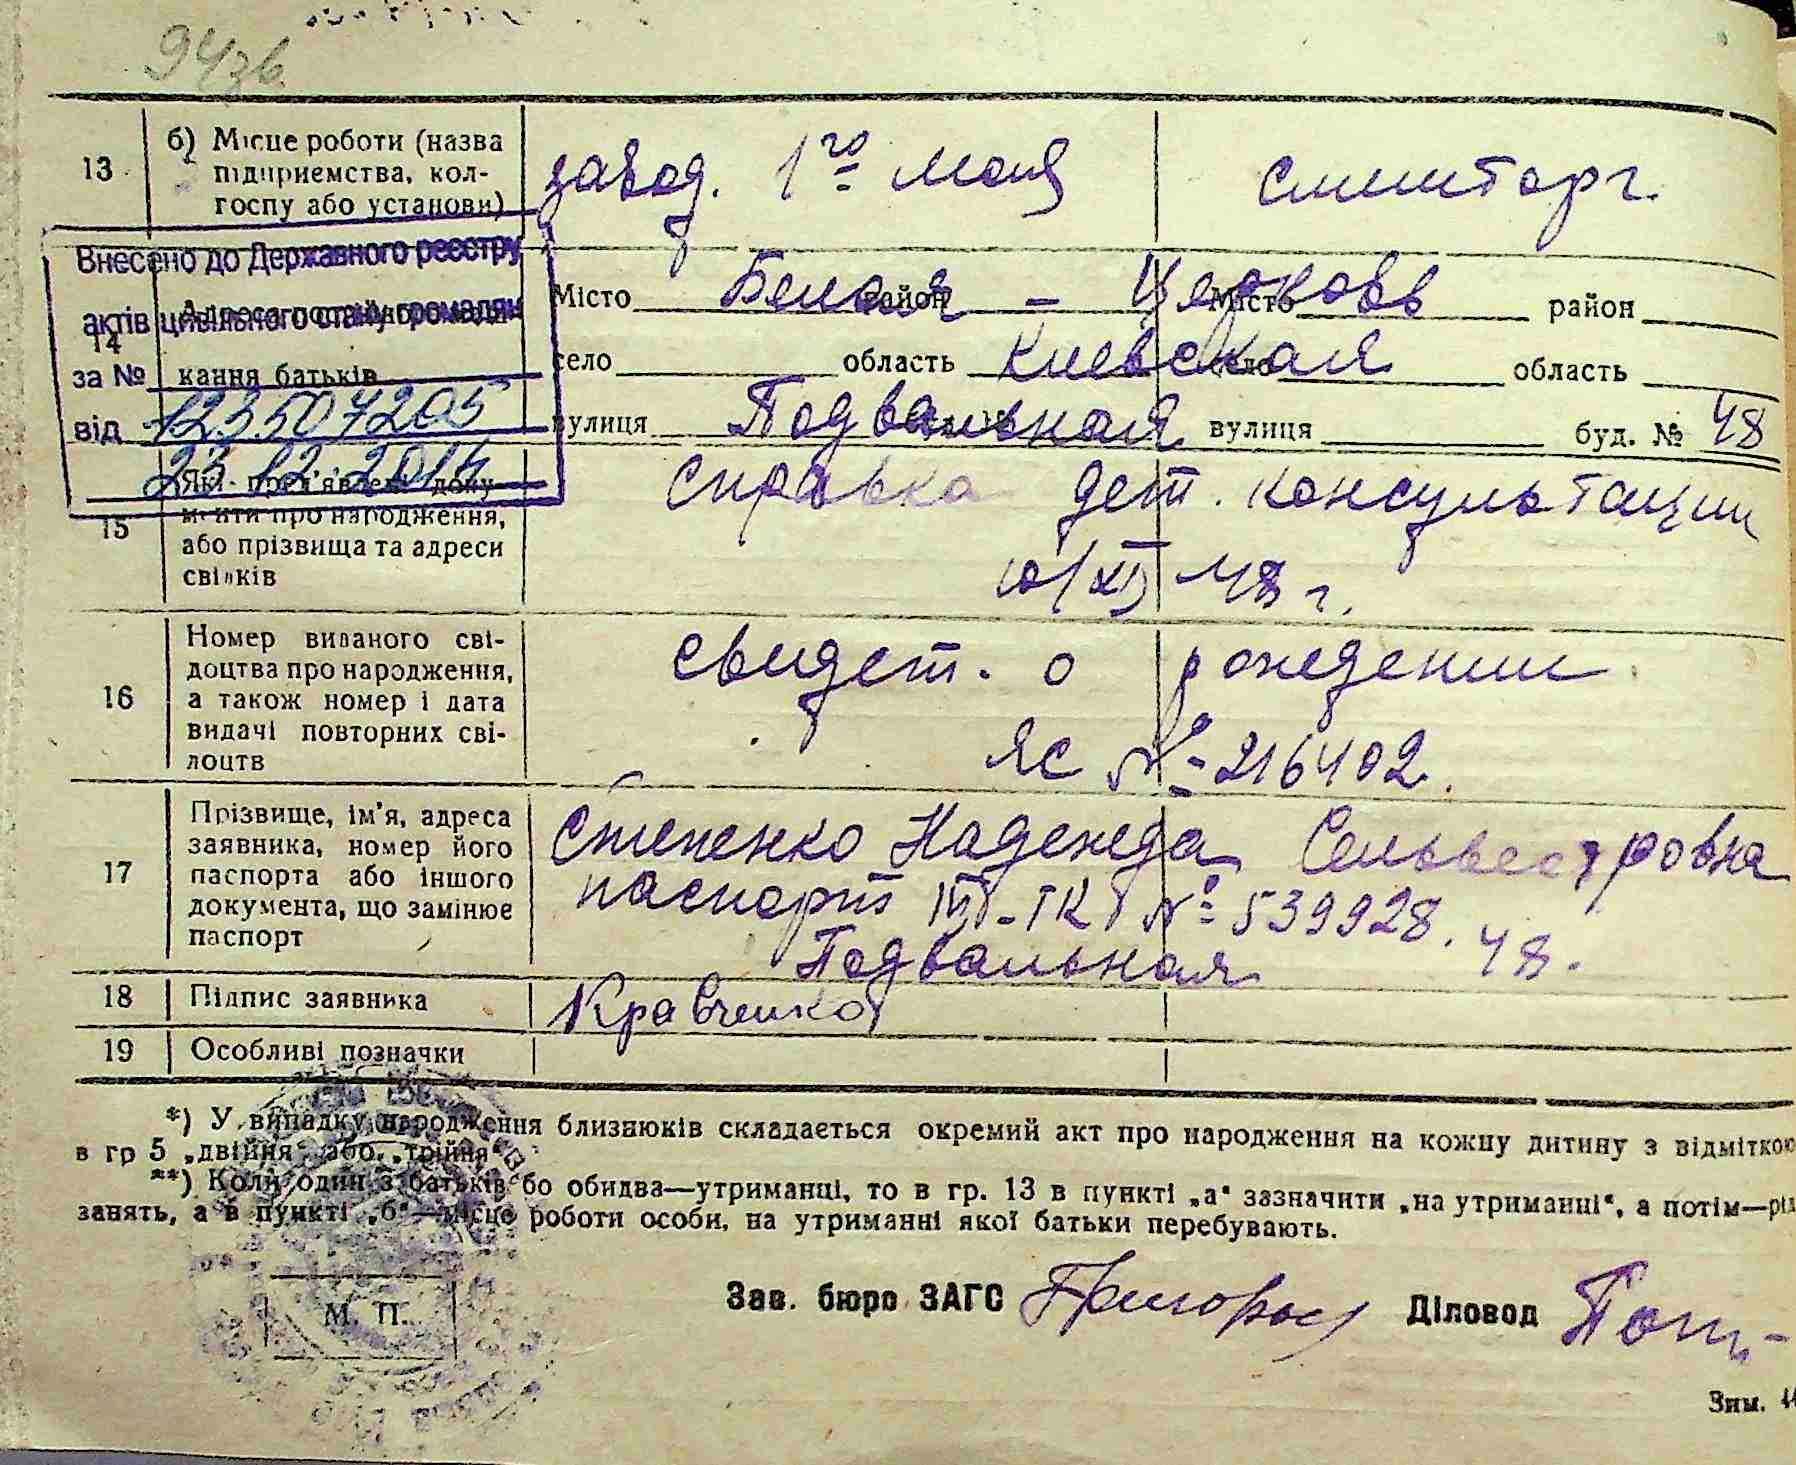 94зв.
13 б) Місце роботи (назва підприємства, колгоспу або установи) завод. 1го мая
Внесено до Державного реєстру
актів цивільного стану громадян
за №
123507205
від
23.12.2014
14
кання батьків
Місто Белая район - Церковь Місто район
село область Киевская село область
вулиця Подвальная вулиця буд. № 48
15 Які пред'явлені документи про народження, або прізвища та адреси свідків
справка дет. консультации
48 г.
16 Номер виданого свідоцтва про народження, а також номер і дата видачі повторних свідоцтв
свидет. о рождении
ЯС № 216402.
17 Прізвище, ім'я, адреса заявника, номер його паспорта або іншого документа, що замінює паспорт
Надежда Сельвестровна
паспорт № 539928.
Подвальная 48.
18 Підпис заявника Кравченко
19 Особливі позначки
*) У випадку народження близнюків складається окремий акт про народження на кожну дитину з відміткою
в гр 5 „двійня“ або „трійня“
**) Коли один з батьків бо обидва—утриманці, то в гр. 13 в пункті „а“ зазначити „на утриманні“, а потім—рід
занять, а в пункті „б“—місце роботи особи, на утриманні якої батьки перебувають.
Зав. бюро ЗАГС Діловод
М. П.
Зим.